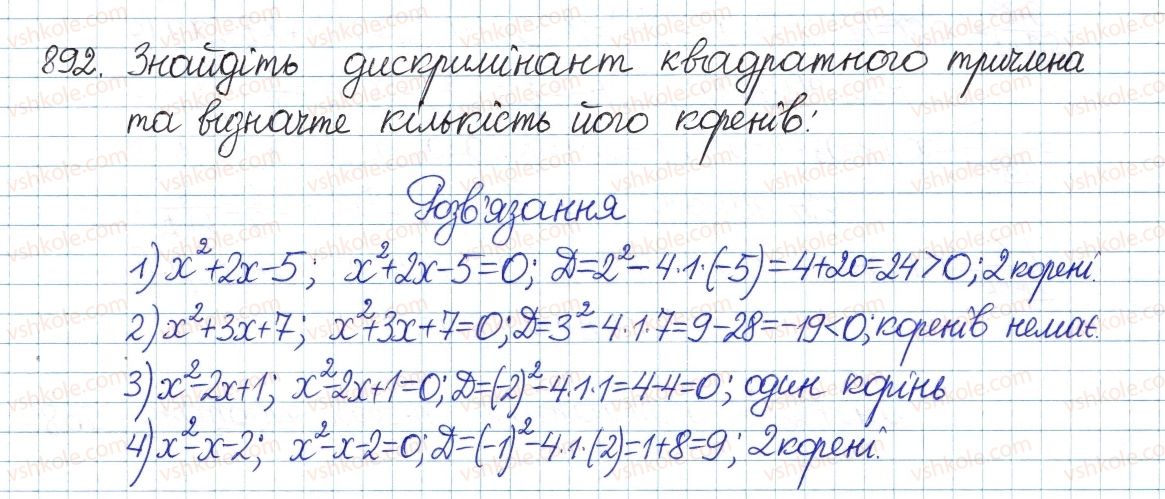 892. Знайдіть дискримінант квадратного тричлена
та відзначте кількість його коренів:
Розв'язання
1) x²+2x-5; x²+2x-5=0; Д=2²-4·1·(-5)=4+20=24>0; 2 корені.
2) x²+3x+7; x²+3x+7=0; Д=3²-4·1·7=9-28=-19<0; коренів немає.
3) x²-2x+1; x²-2x+1=0; Д=(-2)²-4·1·1=4-4=0; один корінь
4) x²-x-2; x²-x-2=0; Д=(-1)²-4·1·(-2)=1+8=9; 2 корені.